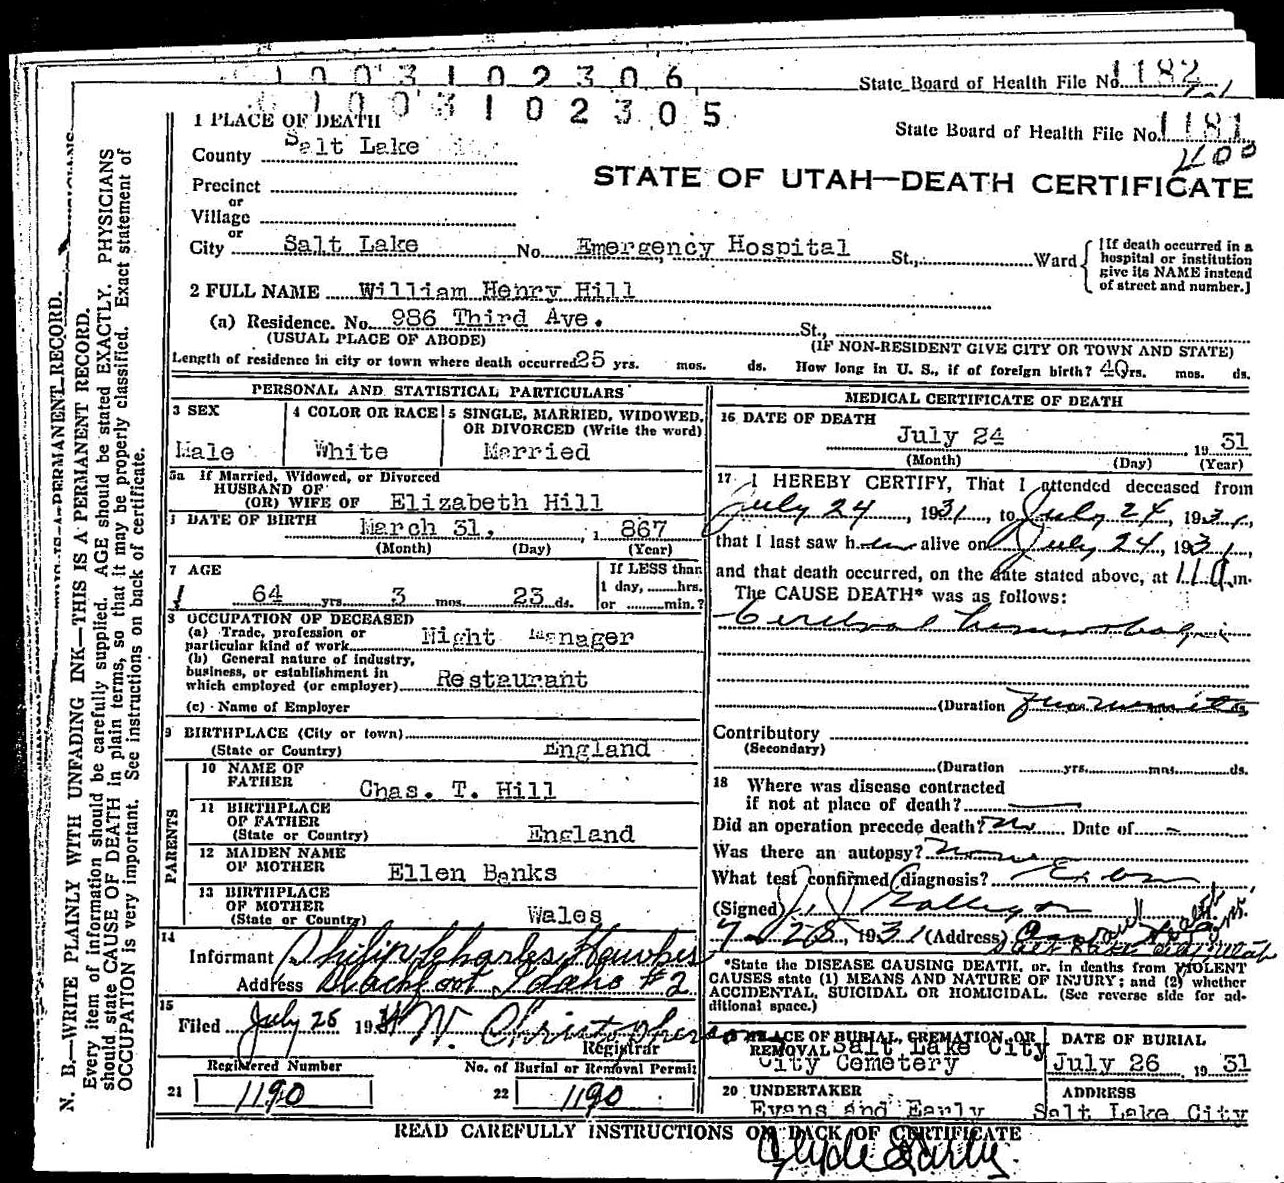 1003102306
State Board of Health File No. 1182
1003102305
1 PLACE OF DEATH
State Board of Health File No. 1181
County Salt Lake
400
STATE OF UTAH—DEATH CERTIFICATE
Precinct
or
Village
or
City Salt Lake No. Emergency Hospital St., Ward
[If death occurred in a
hospital or institution
give its NAME instead
of street and number.]
2 FULL NAME William Henry Hill
(a) Residence. No. 986 Third Ave. St.,
(USUAL PLACE OF ABODE) (IF NON-RESIDENT GIVE CITY OR TOWN AND STATE)
Length of residence in city or town where death occurred 25 yrs. mos. ds. How long in U. S., if of foreign birth? 40 yrs. mos. ds.
PERSONAL AND STATISTICAL PARTICULARS
3 SEX
Male
4 COLOR OR RACE
White
5 SINGLE, MARRIED, WIDOWED,
OR DIVORCED (Write the word)
Married
5a If Married, Widowed, or Divorced
HUSBAND OF
(OR) WIFE OF Elizabeth Hill
DATE OF BIRTH March 31, 1867
(Month) (Day) (Year)
7 AGE
64 yrs. 3 mos. 23 ds.
If LESS than
1 day, hrs.
or min.?
8 OCCUPATION OF DECEASED
(a) Trade, profession or
particular kind of work Night Manager
(b) General nature of industry,
business, or establishment in
which employed (or employer) Restaurant
(c) Name of Employer
9 BIRTHPLACE (City or town)
(State or Country) England
PARENTS
10 NAME OF
FATHER Chas. T. Hill
11 BIRTHPLACE
OF FATHER
(State or Country) England
12 MAIDEN NAME
OF MOTHER Ellen Banks
13 BIRTHPLACE
OF MOTHER
(State or Country) Wales
14
Informant Philip Charles Hawkes
Address Blackfoot, Idaho #2
15
Filed July 26 1931 W. Christopherson
Registrar
Registered Number No. of Burial or Removal Permit
21 1190 22 1190
MEDICAL CERTIFICATE OF DEATH
16 DATE OF DEATH
July 24 1931
(Month) (Day) (Year)
17 I HEREBY CERTIFY, That I attended deceased from
July 24, 1931, to July 24, 1931,
that I last saw him alive on July 24, 1931,
and that death occurred, on the date stated above, at 11 a m.
The CAUSE DEATH* was as follows:
Cerebral hemorrhage
(Duration ds.
Contributory
(Secondary)
(Duration yrs. mos. ds.
18 Where was disease contracted
if not at place of death?
Did an operation precede death? No Date of -
Was there an autopsy? None
What test confirmed diagnosis?
(Signed)
7-25, 1931 (Address)
*State the DISEASE CAUSING DEATH, or, in deaths from VIOLENT
CAUSES state (1) MEANS AND NATURE OF INJURY; and (2) whether
ACCIDENTAL, SUICIDAL OR HOMICIDAL. (See reverse side for ad-
ditional space.)
PLACE OF BURIAL, CREMATION, OR
REMOVAL Salt Lake City
City Cemetery
DATE OF BURIAL
July 26 1931
20 UNDERTAKER
Evans and Early
ADDRESS
Salt Lake City
READ CAREFULLY INSTRUCTIONS ON BACK OF CERTIFICATE
Clyde Early
N. B.—WRITE PLAINLY WITH UNFADING INK—THIS IS A PERMANENT RECORD.
Every item of information should be carefully supplied. AGE should be stated EXACTLY. PHYSICIANS
should state CAUSE OF DEATH in plain terms, so that it may be properly classified. Exact statement of
OCCUPATION is very important. See instructions on back of certificate.